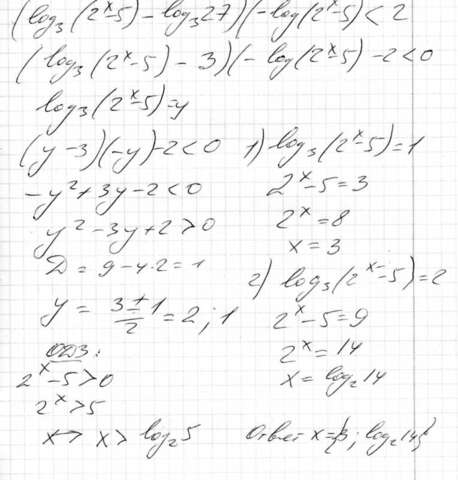 (log₃(2ˣ-5) - log₃27)(-log(2ˣ-5) < 2
(log₃(2ˣ-5) - 3)(-log(2ˣ-5) - 2 < 0
log₃(2ˣ-5) = y
(y-3)(-y) - 2 < 0
-y² + 3y - 2 < 0
y² - 3y + 2 > 0
D = 9 - 4·2 = 1
y = (3±1)/2 = 2; 1
ОДЗ:
2ˣ - 5 > 0
2ˣ > 5
x > x > log₂5
1) log₃(2ˣ-5) = 1
2ˣ - 5 = 3
2ˣ = 8
x = 3
2) log₃(2ˣ-5) = 2
2ˣ - 5 = 9
2ˣ = 14
x = log₂14
Ответ x = {3; log₂14}